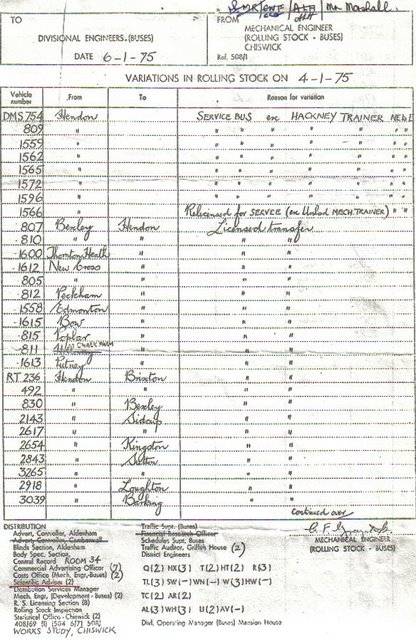 Mr Marshall.
TO
FROM
DIVISIONAL ENGINEERS. (BUSES)
MECHANICAL ENGINEER
(ROLLING STOCK - BUSES)
CHISWICK
DATE 6-1-75
Ref. 508/1
VARIATIONS IN ROLLING STOCK ON 4-1-75
Vehicle number From To Reason for variation
DMS 754 Hendon SERVICE BUS ex HACKNEY TRAINER
809 " " " " " "
1559 " " " " " "
1562 " " " " " "
1565 " " " " " "
1572 " " " " " "
1596 " " " " " "
1566 " Relicensed for SERVICE (ex Unlicd MECH. TRAINER) " "
807 Bexley Hendon Licensed transfer
810 " " " "
1600 Thornton Heath " " "
1612 New Cross " " "
805 " " " "
812 Peckham " " "
1558 Edmonton " " "
1615 Bow " " "
815 Poplar " " "
811 CHALK FARM " " "
1613 Putney " " "
RT 236 Hendon Brixton " "
492 " " " "
830 " Bexley " "
2143 " Sidcup " "
2617 " " " "
2654 " Kingston " "
2843 " Sutton " "
3265 " " " "
2918 " Loughton " "
3039 " Barking " "
continued over
DISTRIBUTION
Advert. Controller, Aldenham
Blinds Section, Aldenham
Body Spec. Section,
Central Record ROOM 34
Commercial Advertising Officer (7)
Costs Office (Mech. Engr. Buses) (2)
Scientific Advisor (2)
Distribution Services Manager
Mech. Engr. (Development - Buses) (2)
R. S. Licensing Section (8)
Rolling Stock Inspection
Statistical Office - Chiswick (2)
WORKS STUDY, CHISWICK
Traffic Supt. (Buses)
Financial Research Officer
Schedules Supt. Buses
Traffic Auditor, Griffith House (2)
District Engineers
Q(2) HX(3) T(2) HT(2) R(3)
TL(3) SW(-) WN(-) W(3) HW(-)
TC(2) AR(2)
AL(3) WH(3) U(2) AV(-)
Divl. Operating Manager (Buses) Mansion House
MECHANICAL ENGINEER
(ROLLING STOCK - BUSES)